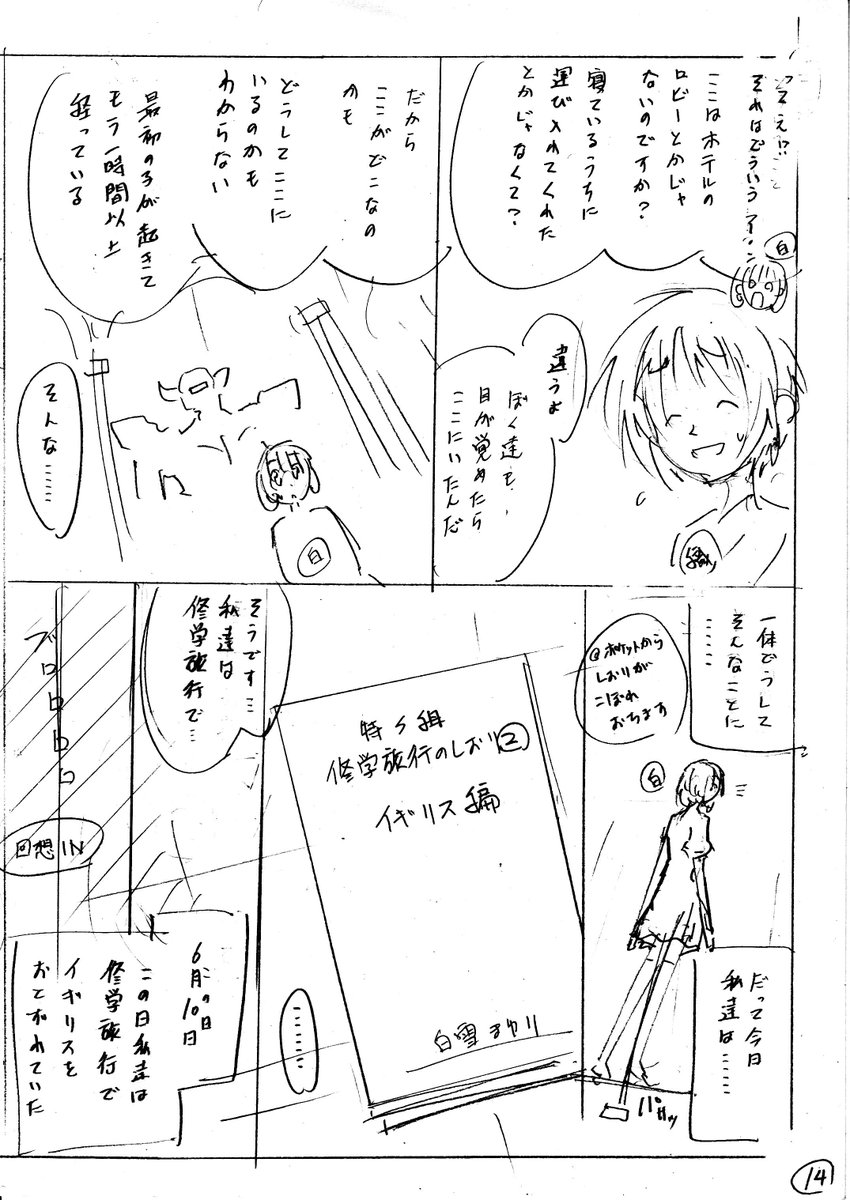 っそえ!?こと
それはどういう
白
ここはホテルの
ロビーとかじゃ
ないのですか?
寝ているうちに
運び入れてくれた
とかじゃなくて?
違うよ
ぼく達も、
目が覚めたら
ここにいたんだ
だから
ここがどこなの
かも
どうしてここに
いるのかも
わからない
最初の子が起きて
もう一時間以上
経っている
白
そんな……
一体どうして
そんなことに
……
ポケットから
しおりが
こぼれ
おちます
白
だって今日
私達は……
パサッ
修学旅行のしおり②
イギリス編
白雪まゆり
………
そうです…
私達は
修学旅行で…
ブロロロロ
回想IN
6月10日
の日
この日私達は
修学旅行で
イギリスを
おとずれていた
14